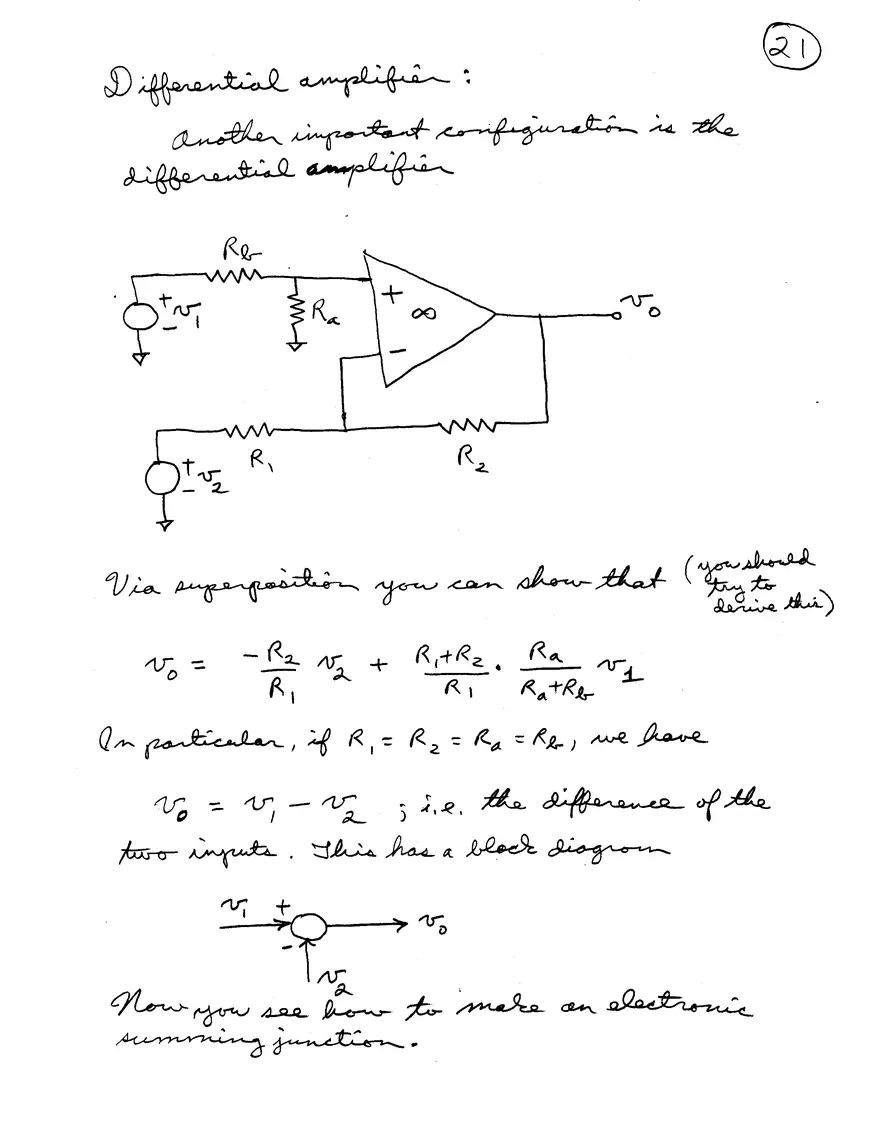 21
Differential amplifier :
Another important configuration is the
differential amplifier
R_b
+ v_1 -
R_a
+
∞
-
v_0
R_1
R_2
+ v_2 -
Via superposition you can show that (you should
try to
derive this)
v_0 = -R_2/R_1 v_2 + (R_1+R_2)/R_1 · R_a/(R_a+R_b) v_1
In particular, if R_1 = R_2 = R_a = R_b, we have
v_0 = v_1 - v_2 ; i.e. the difference of the
two inputs. This has a block diagram
v_1 + v_0
-
v_2
Now you see how to make an electronic
summing junction.